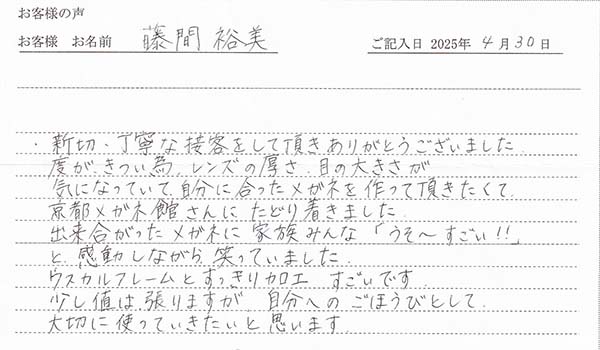 お客様の声
お客様 お名前 藤間 裕美 ご記入日 2025年 4月30日
・新切・丁寧な接客をして頂きありがとうございました
度が、きつい為、レンズの厚さ、目の大きさが
気になっていて、自分に合ったメガネを作って頂きたくて、
京都メガネ館さんに たどり着きました
出来合がったメガネに 家族みんな「うそ〜すごい!!」
と 感動しながら 笑っていました
ウスカルフレームとすっきりカロエ すごいです
少し値は張りますが、自分への ごほうびとして
大切に使っていきたいと思います